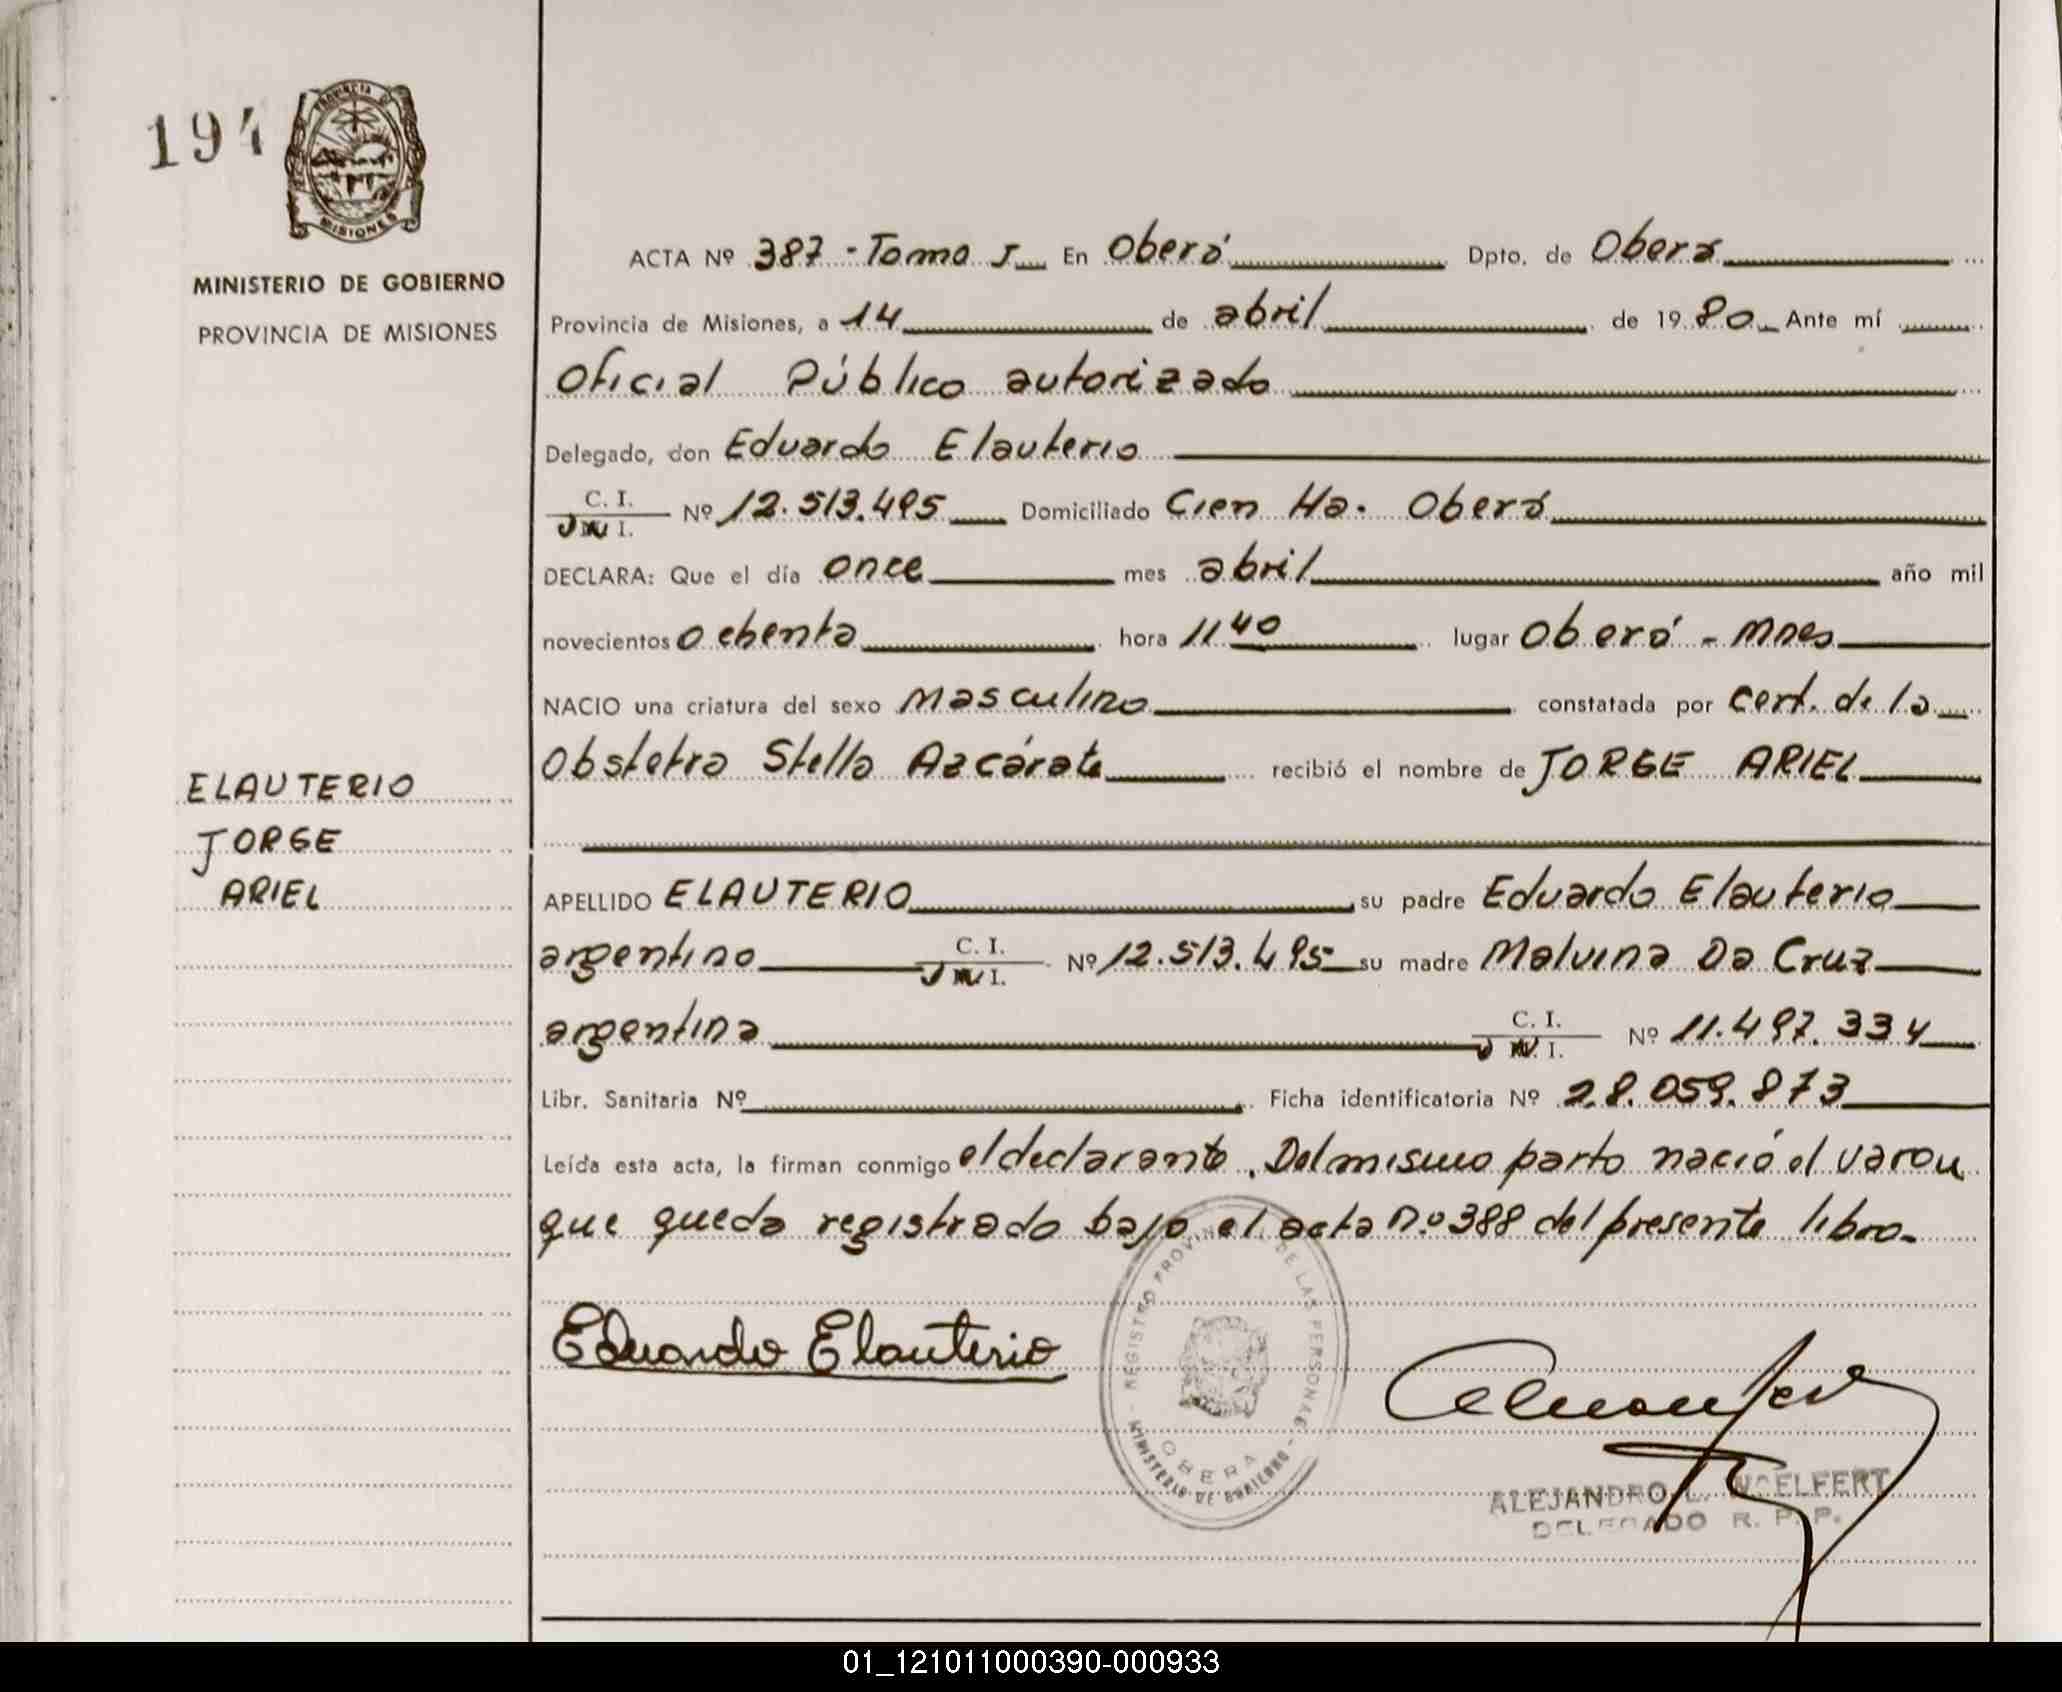 194
PROVINCIA DE
MISIONES
MINISTERIO DE GOBIERNO
PROVINCIA DE MISIONES
ACTA Nº 387 - Tomo I En Oberá Dpto. de Oberá
Provincia de Misiones, a 14 de abril de 1980 Ante mí
Oficial Público autorizado
Delegado, don Eduardo Elauterio
C. I.
Nº 12.513.495 Domiciliado Cien Ha. Oberá
I.
DECLARA: Que el día once mes abril año mil
novecientos ochenta hora 11 40 lugar Oberá - Mnes
NACIO una criatura del sexo masculino constatada por cert. de la
Obstetra Stella Azcárate recibió el nombre de JORGE ARIEL
ELAUTERIO
JORGE
ARIEL
APELLIDO ELAUTERIO su padre Eduardo Elauterio
argentino C. I. Nº 12.513.495 su madre Malvina Da Cruz
I.
argentina C. I. Nº 11.497.334
I.
Libr. Sanitaria Nº Ficha identificatoria Nº 28.059.873
Leída esta acta, la firman conmigo el declarante. Del mismo parto nació el varon
que queda registrado bajo el acta n.º 388 del presente libro.-
Eduardo Elauterio
REGISTRO PROVIN DE LAS PERSONAS
OBERA
MINISTERIO DE GOBIERNO
ALEJANDRO L. WOELFERT
DELEGADO R. P. P.
01_121011000390-000933